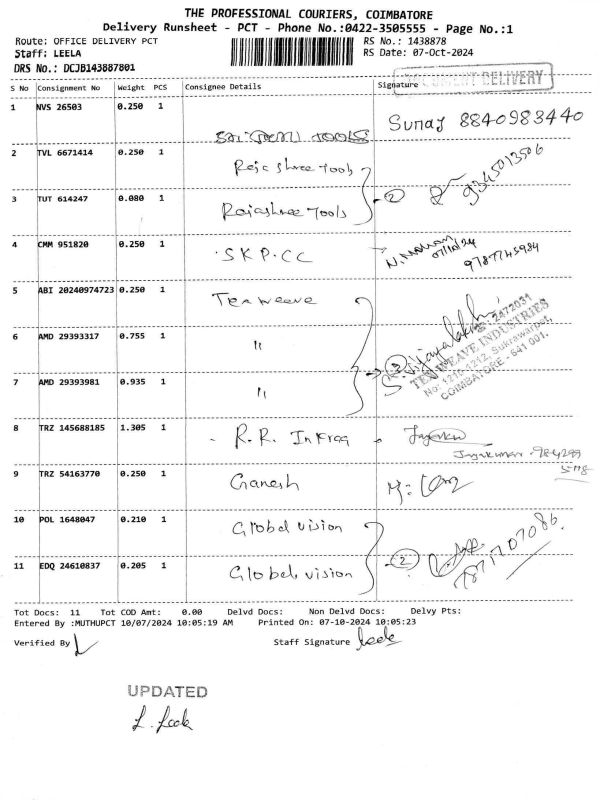 THE PROFESSIONAL COURIERS, COIMBATORE
Delivery Runsheet - PCT - Phone No.:0422-3505555 - Page No.:1
Route: OFFICE DELIVERY PCT RS No.: 1438878
Staff: LEELA RS Date: 07-Oct-2024
DRS No.: DCJB143887801
DELIVERY
S No Consignment No Weight PCS Consignee Details Signature
1 NVS 26503 0.250 1 TOOLS Suraj 8840983440
2 TVL 6671414 0.250 1 Rajashree Tools
3 TUT 614247 0.080 1 Rajashree Tools 2 9345013506
4 CMM 951820 0.250 1 S.K.P.CC 07/10/24 9787745984
5 ABI 20240974723 0.250 1 Texweave
6 AMD 29393317 0.755 1 "
7 AMD 29393981 0.935 1 " 3 S. Vijayalakshmi
: 2472031
TEXWEAVE INDUSTRIES
No: 1210-1212, Sukrawarpet,
COIMBATORE - 641 001.
8 TRZ 145688185 1.305 1 R.R. Infraa
Jayakumar
9 TRZ 54163770 0.250 1 Ganesh
10 POL 1648047 0.210 1 Global vision
11 EDQ 24610837 0.205 1 Global vision 2 7871707086
Tot Docs: 11 Tot COD Amt: 0.00 Delvd Docs: Non Delvd Docs: Delvy Pts:
Entered By :MUTHUPCT 10/07/2024 10:05:19 AM Printed On: 07-10-2024 10:05:23
Verified By Staff Signature Leela
UPDATED
L. Leela